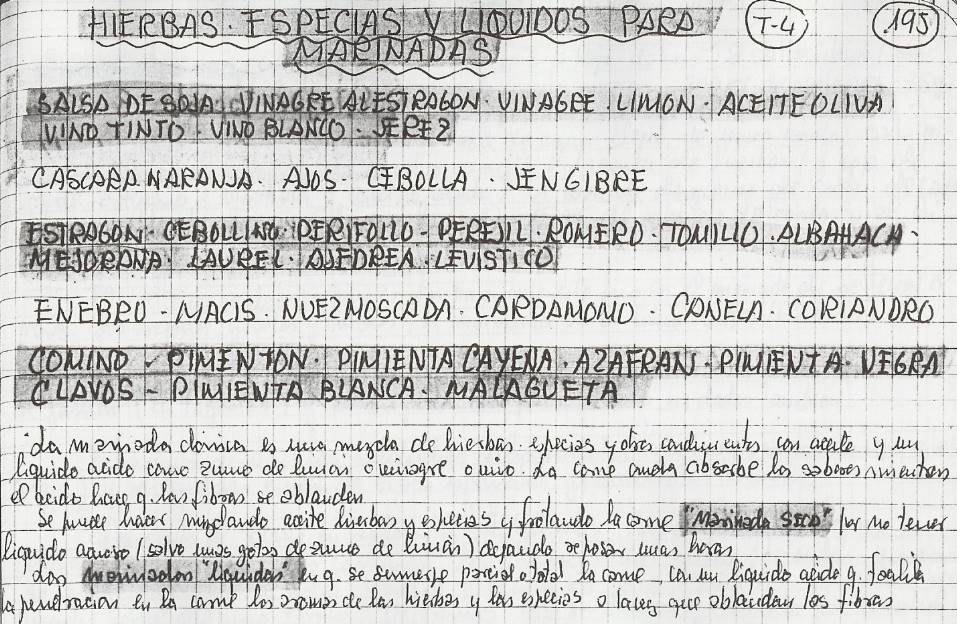 HIERBAS. ESPECIAS Y LIQUIDOS PARA T-4 195
MARINADAS
SALSA DE SOJA. VINAGRE AL ESTRAGON. VINAGRE. LIMON. ACEITE OLIVA
VINO TINTO. VINO BLANCO. JEREZ
CASCARA NARANJA. AJOS. CEBOLLA. JENGIBRE
ESTRAGON. CEBOLLINO. PERIFOLLO - PEREJIL. ROMERO. TOMILLO. ALBAHACA.
MEJORANA. LAUREL. AJEDREA. LEVISTICO
ENEBRO - MACIS. NUEZ MOSCADA. CARDAMOMO. CANELA. CORIANDRO
COMINO - PIMENTON. PIMIENTA CAYENA. AZAFRAN. PIMIENTA. NEGRA
CLAVOS - PIMIENTA BLANCA. MALAGUETA
La marinada clasica es una mezcla de hierbas. especias y otros condimentos con aceite y un
liquido acido como zumo de limon o vinagre o vino. La carne cruda absorbe los sabores mientras
el acido hace q. las fibras se ablanden
Se puede hacer mezclando aceite hierbas y especias y frotando la carne "Marinada SECA" por no tener
liquido acuoso (salvo unas gotas de zumo de limon) dejando reposar unas horas
Las marinadas "liquidas" en q. se sumerje parcial o total la carne, con un liquido acido q. facilita
la penetracion en la carne los aromas de las hierbas y las especias a la vez que ablandan las fibras